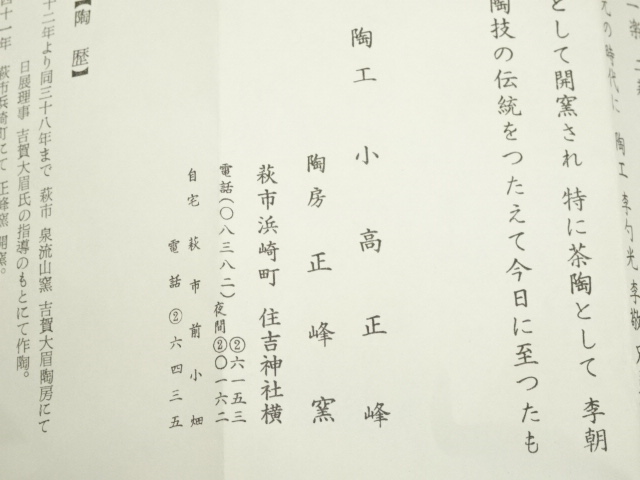 元の時代に 陶工 李勺光 李敬
として開窯され 特に茶陶として 李朝
陶技の伝統をつたえて今日に至つたも
陶工 小高正峰
陶房 正峰窯
萩市浜崎町 住吉神社横
電話(〇八三八二) ②六一五三
夜間②〇一六二
自宅 萩市前小畑
電話②六四三五
【陶歴】
十二年より同三十八年まで 萩市 泉流山窯 吉賀大眉陶房にて
日展理事 吉賀大眉氏の指導のもとにて作陶。
四十一年 萩市浜崎町にて 正峰窯 開窯。